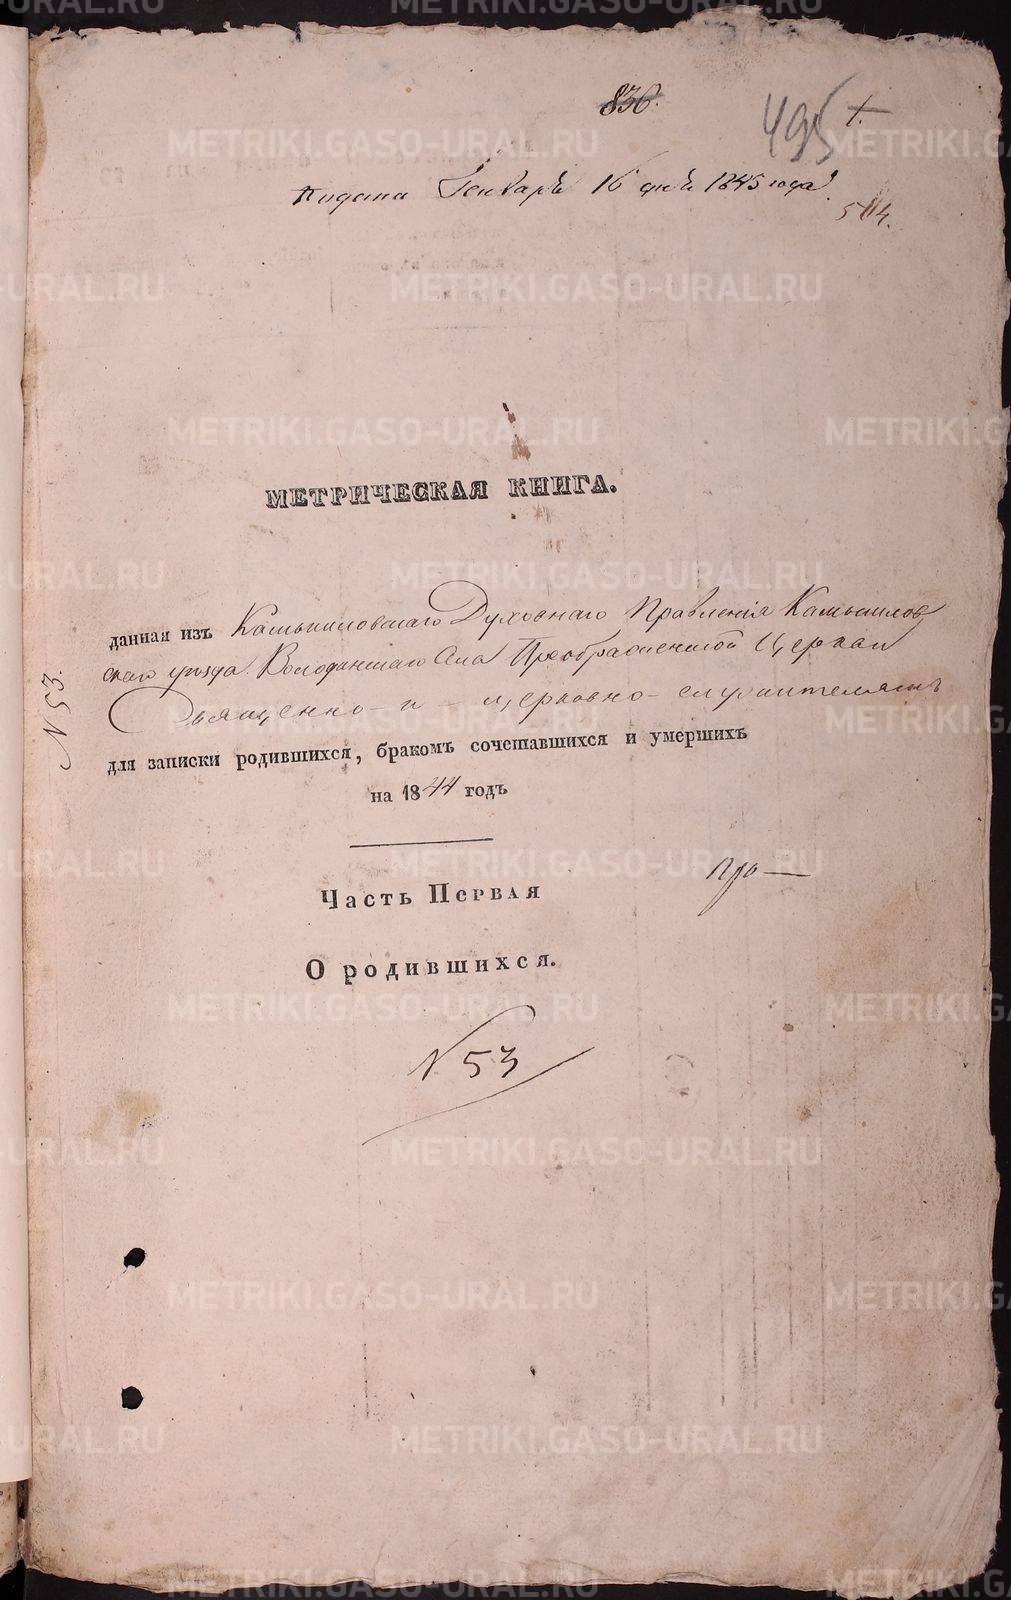 836.
495 1.
Подана Генваря 16 дня 1845 года
514.
МЕТРИЧЕСКАЯ КНИГА.
данная изъ Камышловскаго Духовнаго Правленія Камышлов
скаго уѣзда Володинскаго Села Преображенской Церкви
Священно-и-церковно-служителямъ
для записки родившихся, бракомъ сочетавшихся и умершихъ
на 1844 годъ
N 53.
Часть Первая
О родившихся.
N 53
METRIKI.GASO-URAL.RU